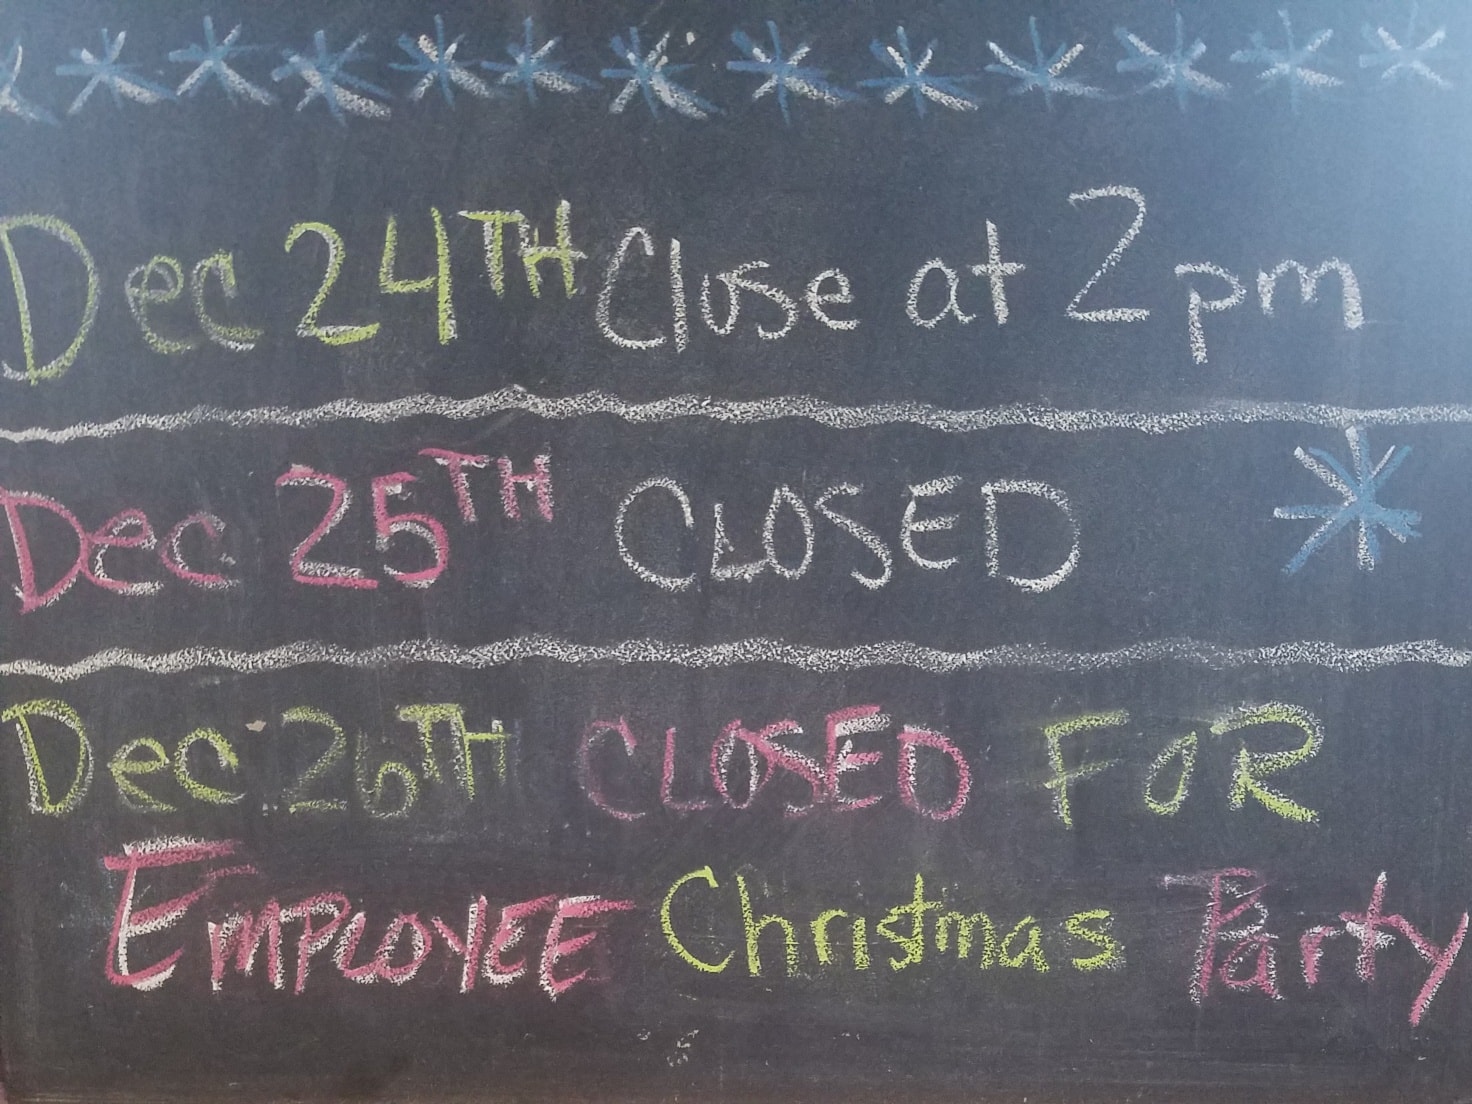 Dec 24TH Close at 2pm
Dec 25TH CLOSED
Dec 26TH CLOSED FOR
EMPLOYEE Christmas Party